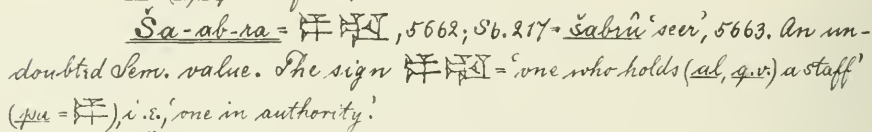 Ša-ab-ra = 𒉺 𒀠, 5662; Sb. 217 = šabrû 'seer', 5663. An un-
doubted Sem. value. The sign 𒉺 𒀠 = 'one who holds (al, q.v.) a staff'
(pa = 𒉺), i.e., 'one in authority.'